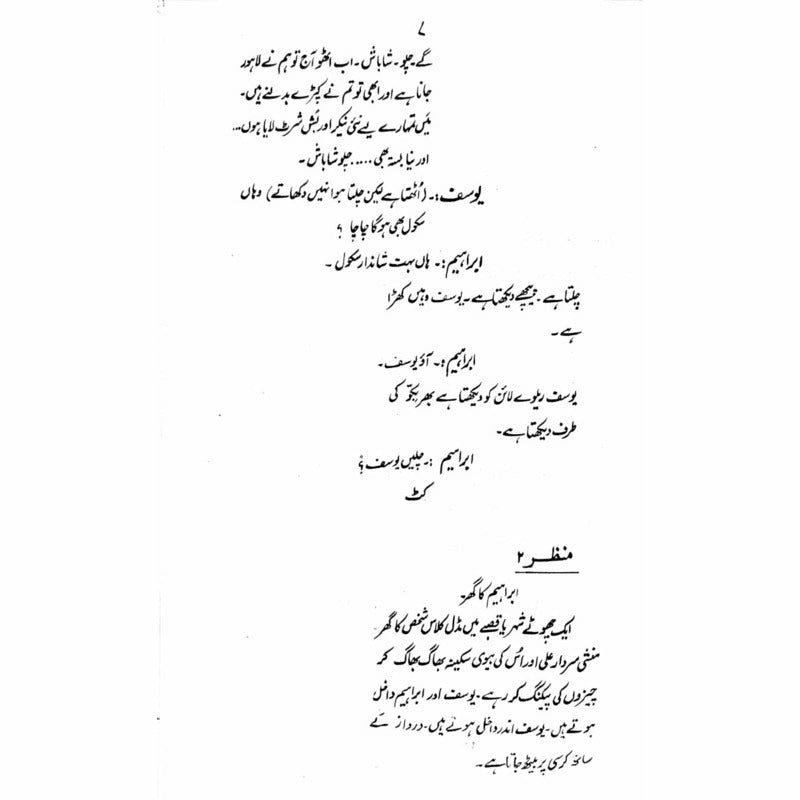 ۷
گے چلو۔ شاباش۔ اب اٹھو آج تو ہم نے لاہور
جانا ہے اور ابھی تو تم نے کپڑے بدلنے ہیں۔
میں تمہارے لیے نئی نیکر اور بش شرٹ لایا ہوں...
اور نیا بستہ بھی ..... چلو شاباش۔
یوسف:۔ (اُٹھتا ہے لیکن چلتا ہوا نہیں دکھاتے) وہاں
سکول بھی ہو گا چاچا ؟
ابراہیم:۔ ہاں بہت شاندار سکول ۔
چلتا ہے ۔ پیچھے دیکھتا ہے۔ یوسف وہیں کھڑا
ہے ۔
ابراہیم:۔ آؤ یوسف۔
یوسف ریلوے لائن کو دیکھتا ہے پھر بگو کی
طرف دیکھتا ہے۔
ابراہیم :۔ چلیں یوسف ؟
کٹ
منظر ۲
ابراہیم کا گھر۔
ایک چھوٹے شہر یا قصبے میں مڈل کلاس شخص کا گھر
منشی سردار علی اور اُس کی بیوی سکینہ بھاگ بھاگ کر
چیزوں کی پیکنگ کر رہے۔ یوسف اور ابراہیم داخل
ہوتے ہیں۔ یوسف اندر داخل ہوتے ہیں۔ درداز کے
ساتھ کرسی پر بیٹھ جاتا ہے۔